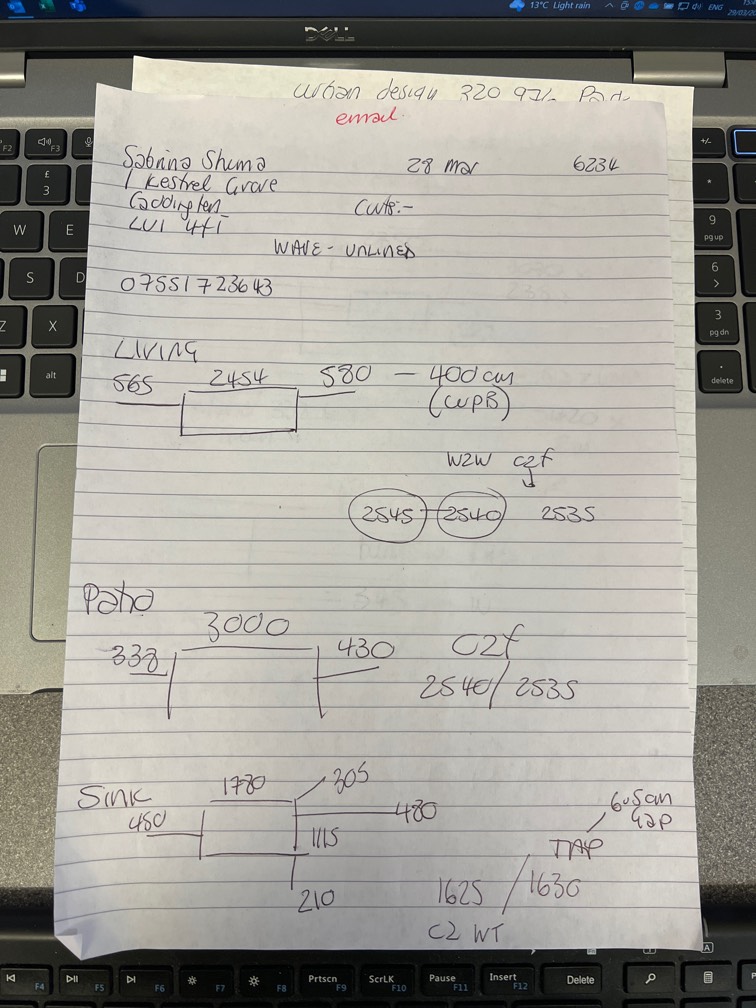 13°C Light rain
ENG
DELL
urban design 320
email.
Sabrina Shuma 28 mar 6234
1 Kestrel Grove
Caddington curts:-
LU1 4fi
WAVE - UNLINED
07551723643
LIVING
565 2454 580 - 400cm
(cupB)
W2W c2f
2545 2540 2535
Patio
3000
338 430 C2f
2540/2535
Sink 1780 305
480 480
1115
210
6.5cm
gap
TAP
1625 / 1630
C2 WT
F2
F3
£
3
W
E
S
D
Z
X
alt
+/-
*
9
pg up
6
>
3
pg dn
.
delete
F4
F5
F6
F7
F8
Prtscn
F9
ScrLK
F10
Pause
F11
Insert
F12
Delete
A